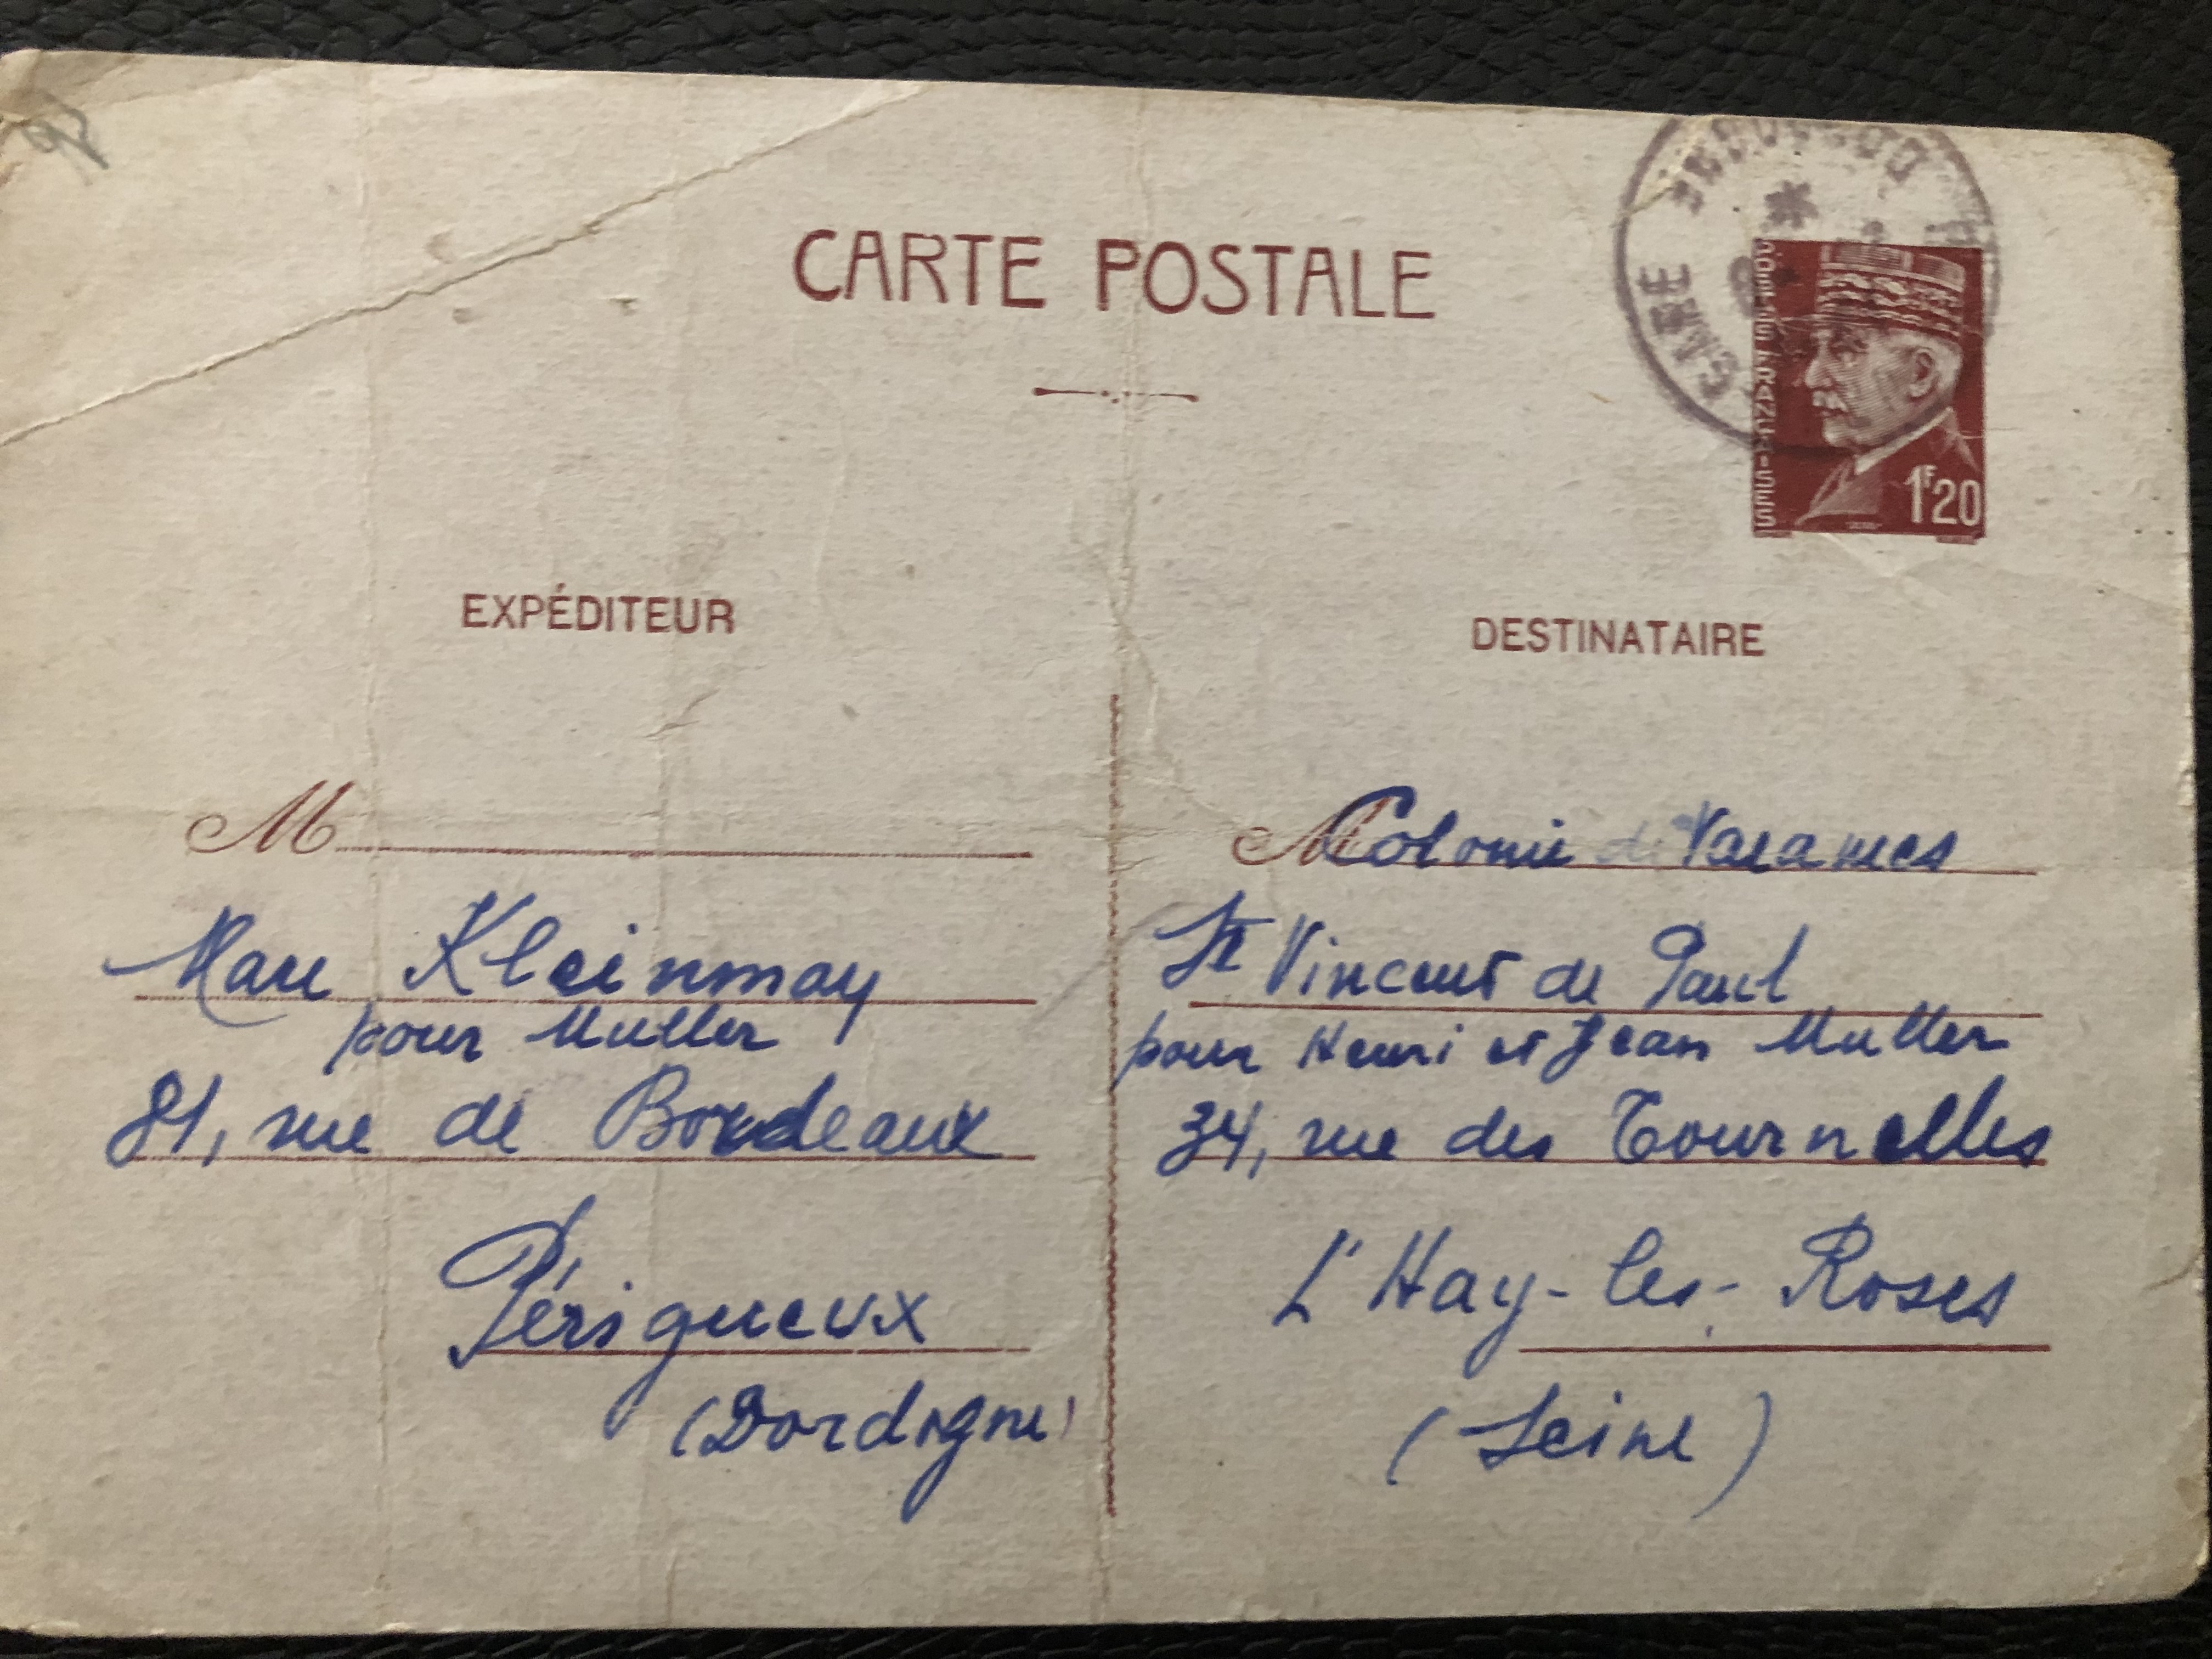 CARTE POSTALE
GARE
POSTES FRANÇAISES
1F20
EXPÉDITEUR
M
Marc Kleinmay
pour Muller
81, rue de Bordeaux
Périgueux
(Dordogne)
DESTINATAIRE
M Colonie de Vacances
St Vincent de Paul
pour Henri et Jean Muller
34, rue des Tournelles
L'Hay-les-Roses
(Seine)